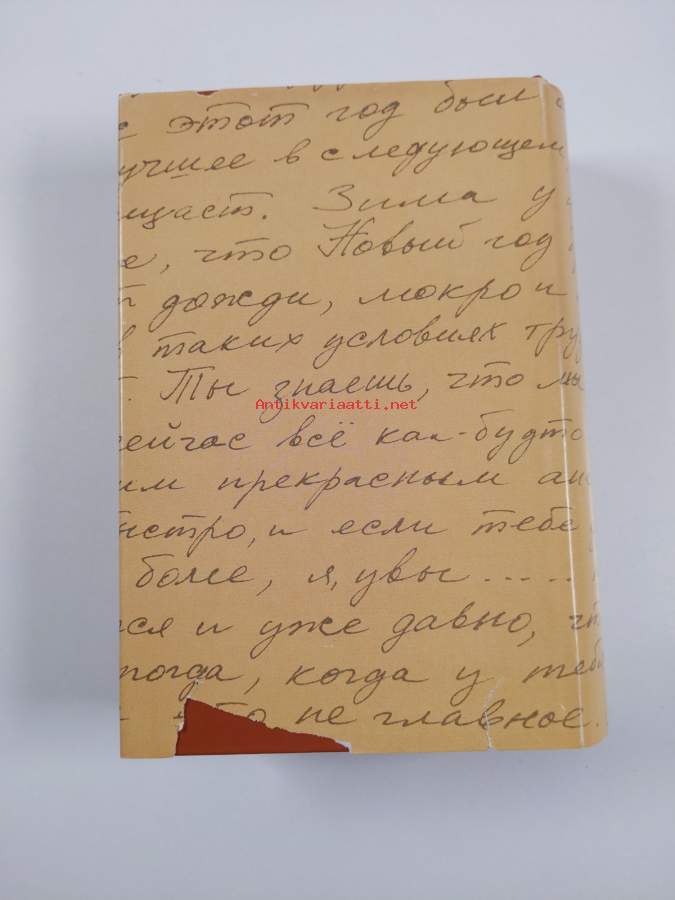 этот год был
учшее в следующем
щаст. Зима у
е, что Новый год
т дожди, мокро и
в таких условиях тру
. Ты знаешь, что мы
Antikvariaatti.net
сейчас всё как-будто
им прекрасным ан
ыстро, и если тебе
более, я, увы .....
ся и уже давно, чт
тогда, когда у теб
это не главное.